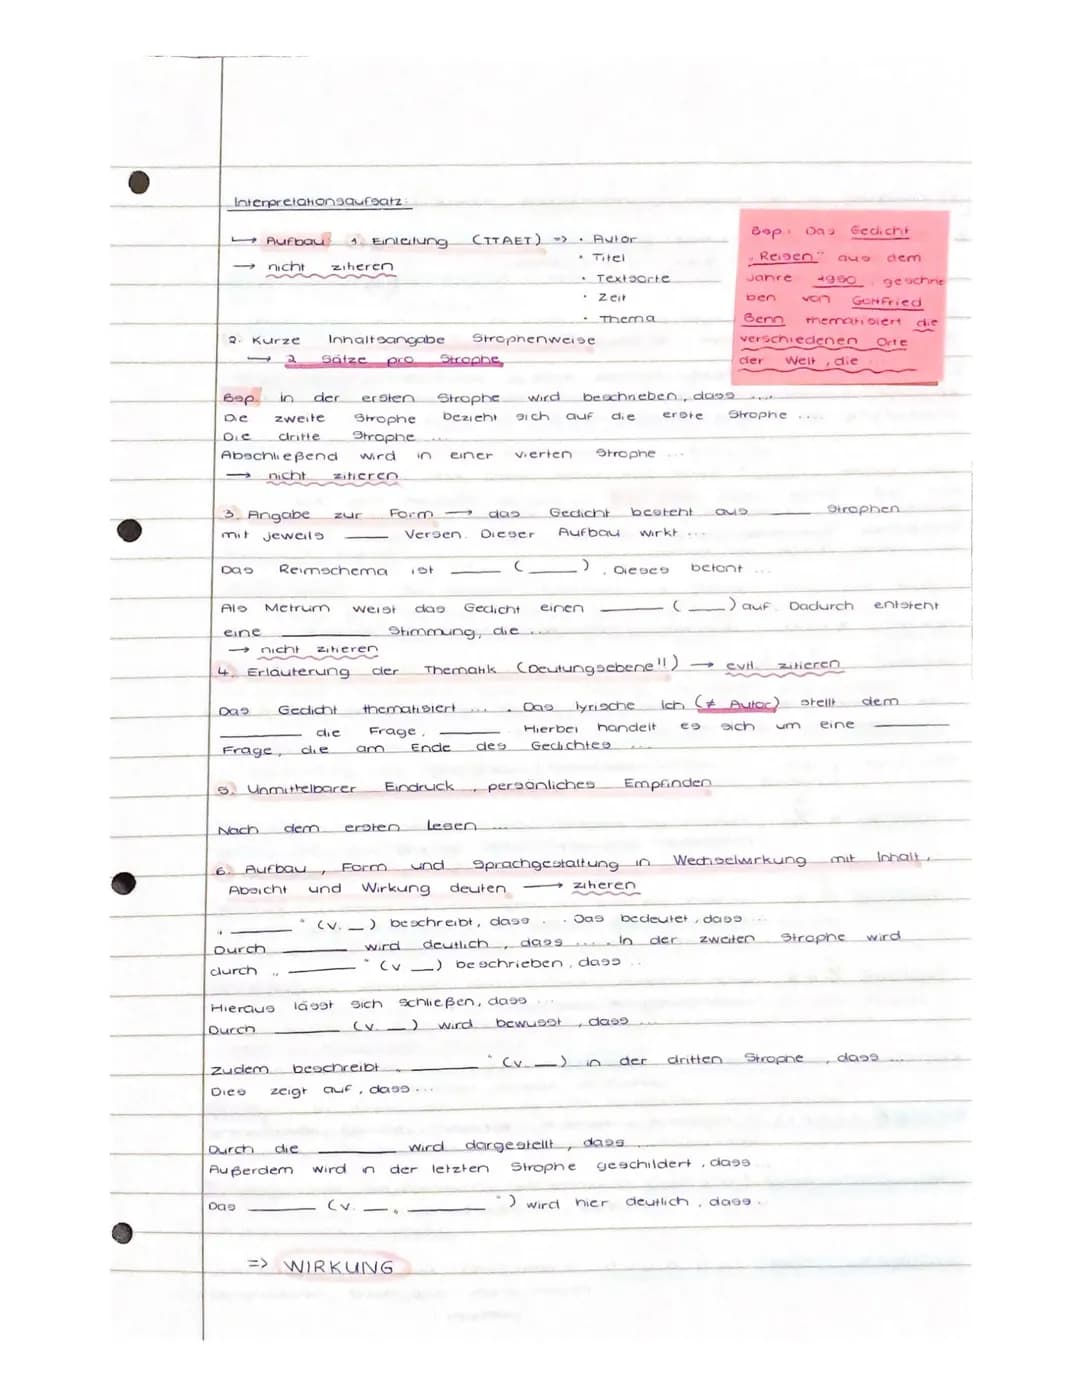 Interpretationsaufsatz:
↳ Aufbau: 1. Einleitung (TTAET) => · Autor
→ nicht zitieren
· Titel
· Textsorte
· Zeit
· Thema
Bsp.: Das Gedicht
„Reisen" aus dem
Jahre 1950, geschrie
ben von Gottfried
Benn thematisiert die
verschiedenen Orte
der Welt, die
2. Kurze Inhaltsangabe Strophenweise
→ 2 Sätze pro Strophe
Bsp. In der ersten Strophe wird beschrieben, dass ...
Die zweite Strophe bezieht sich auf die erste Strophe ...
Die dritte Strophe ...
Abschließend wird in einer vierten Strophe ...
→ nicht zitieren
3. Angabe zur Form → das Gedicht besteht aus ___ Strophen
mit jeweils ___ Versen. Dieser Aufbau wirkt ...
Das Reimschema ist ___ (___). Dieses betont ...
Als Metrum weist das Gedicht einen ___ (___) auf. Dadurch entsteht
eine ___ Stimmung, die ...
→ nicht zitieren
4. Erläuterung der Thematik (Deutungsebene!!) → evtl. zitieren
Das Gedicht thematisiert ... . Das lyrische Ich (≠ Autor) stellt dem
___ die Frage, ___ Hierbei handelt es sich um eine ___
Frage, die am Ende des Gedichtes ...
5. Unmittelbarer Eindruck, persönliches Empfinden
Nach dem ersten Lesen ...
6. Aufbau, Form und Sprachgestaltung in Wechselwirkung mit Inhalt,
Absicht und Wirkung deuten → zitieren
„___" (v. _) beschreibt, dass ... Das bedeutet, dass ...
Durch ___ wird deutlich, dass .... In der zweiten Strophe wird
durch „___" (v _) beschrieben, dass ..
Hieraus lässt sich schließen, dass ...
Durch ___ (v. _) wird bewusst, dass ...
Zudem beschreibt „___" (v. _) in der dritten Strophe, dass ...
Dies zeigt auf, dass ...
Durch die ___ wird dargestellt, dass
Außerdem wird in der letzten Strophe geschildert, dass
Das ___ (v. _, ___") wird hier deutlich, dass.
=> WIRKUNG